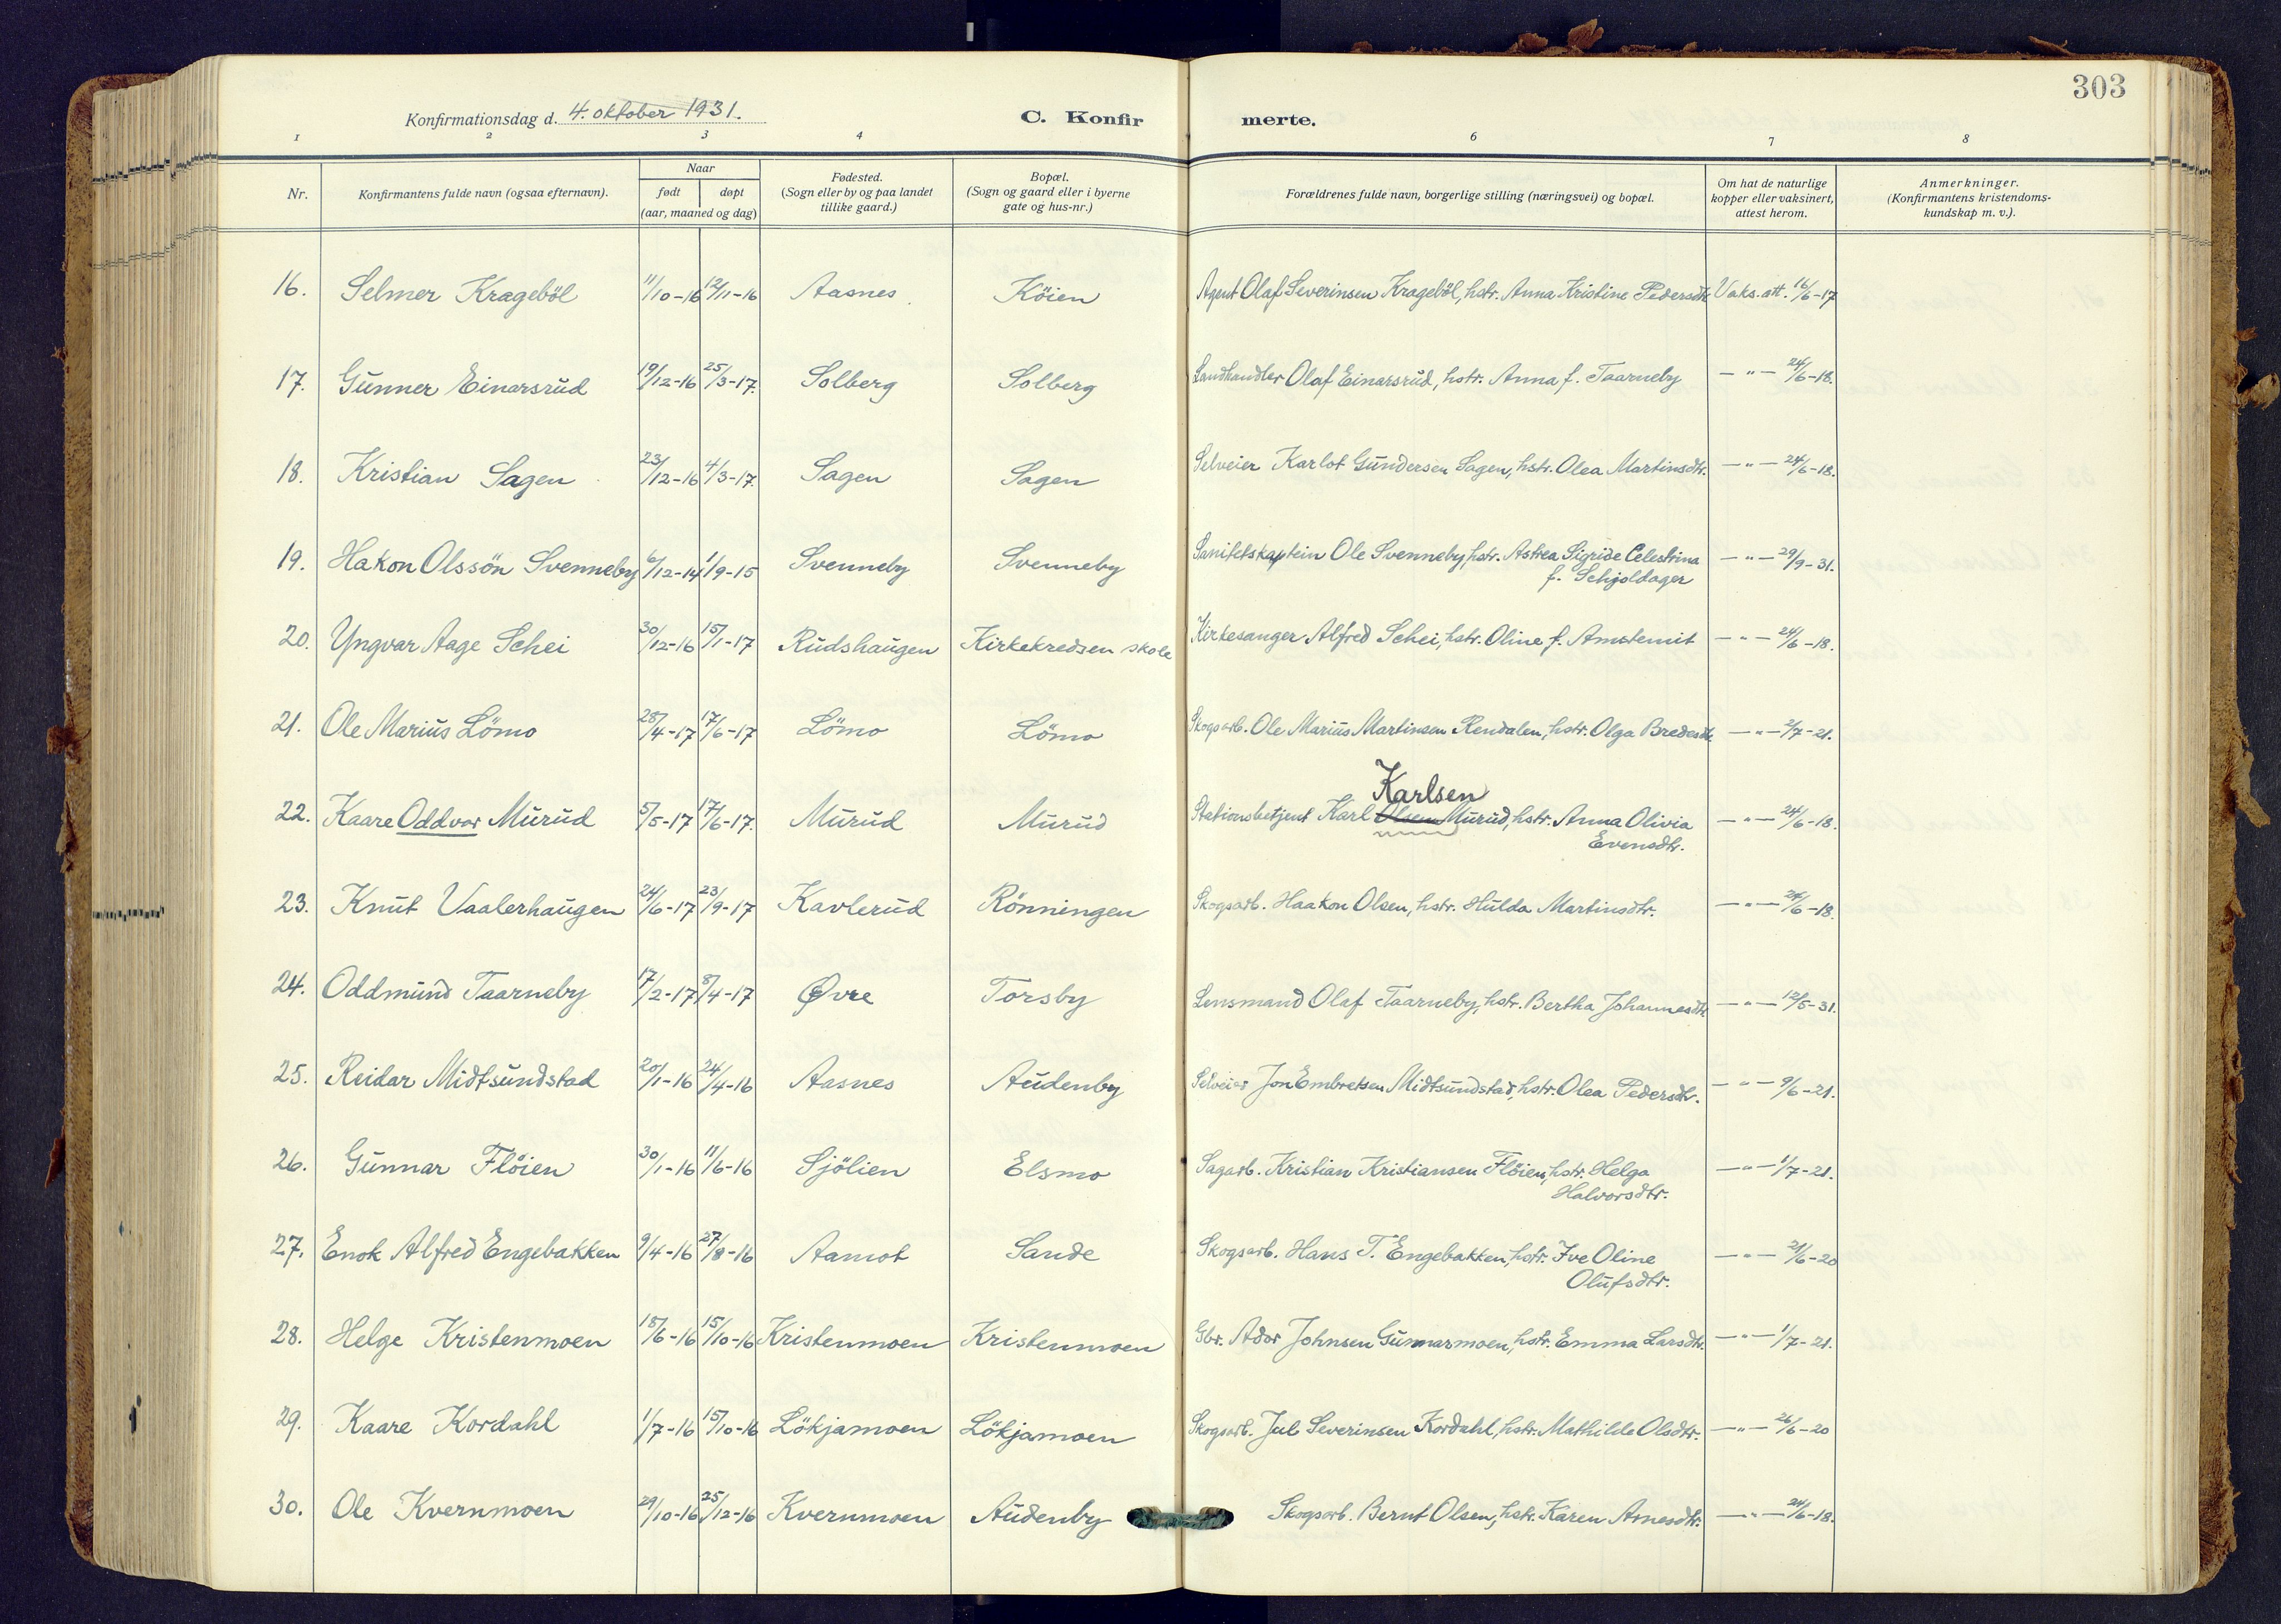 303
Konfirmationsdag d. 4. oktober 1931.
C. Konfirmerte.
1 2 3 4 6 7 8
Nr. Konfirmantens fulde navn (ogsaa efternavn). Naar født døpt (aar, maaned og dag) Fødested. (Sogn eller by og paa landet tillike gaard.) Bopæl. (Sogn og gaard eller i byerne gate og hus-nr.) Forældrenes fulde navn, borgerlige stilling (næringsvei) og bopæl. Om hat de naturlige kopper eller vaksinert, attest herom. Anmerkninger. (Konfirmantens kristendomskundskap m. v.).
16. Selmer Krageböl 11/10-16 12/11-16 Aasnes Köien Agent Olaf Severinsen Krageböl, hstr. Anna Kristine Pedersdtr. Vaks. att. 16/6-17
17. Gunner Einarsrud 19/12-16 25/3-17. Solberg Solberg Landhandler Olaf Einarsrud, hstr. Anna f. Taarneby — " — 24/6-18.
18. Kristian Sagen 23/12-16 4/3-17. Sagen Sagen Selveier Karlot Gundersen Sagen, hstr. Olea Martinsdtr. — " — 24/6-18.
19. Hakon Olssön Svenneby 6/12-14 1/9-15 Svenneby Svenneby Sanitetskaptein Ole Svenneby, hstr. Astrea Sigride Celestina — " — 29/9-31.
f. Schjoldager
20. Yngvar Aage Schei 30/12-16 15/1-17 Rudshaugen Kirkekredsen skole Kirkesanger Alfred Schei, hstr. Oline f. Amstemit — " — 24/6-18.
21. Ole Marius Lömo 28/4-17 17/6-17 Lömo Lömo Skogsarb. Ole Marius Martinsen Rendalen, hstr. Olga Bredesdtr. — " — 2/7-21.
Karlsen
22. Kaare Oddvar Murud 5/5-17 17/6-17. Murud Murud Stationsbetjent Karl Olsen Murud, hstr. Anna Olivia — " — 24/6-18.
Evensdtr.
23. Knut Vaalerhaugen 24/6-17 23/9-17 Kavlerud Rönningen Skogsarb. Haakon Olsen, hstr. Hulda Martinsdtr. — " — 24/6-18.
24. Oddmund Taarneby 17/2-17 8/4-17 Øvre Torsby Lensmand Olaf Taarneby, hstr. Bertha Johannesdtr — " — 12/5-31.
25. Reidar Midtsundstad 20/1-16 24/4-16 Aasnes Audenby Selveier Jon Embretsen Midtsundstad, hstr. Olea Pedersdtr. — " — 9/6-21.
26. Gunnar Flöien 30/1-16 11/6-16 Sjölien Elsmo Sagarb. Kristian Kristiansen Flöien, hstr. Helga — " — 1/7-21.
Halvorsdtr.
27. Enok Alfred Engebakken 9/4-16 27/8-16 Aamot Sande Skogsarb. Hans T. Engebakken, hstr. Ive Oline — " — 21/6-20
Olufsdtr.
28. Helge Kristenmoen 18/6-16 15/10-16 Kristenmoen Kristenmoen Gbr. Ador Johnsen Gunnarmoen, hstr. Emma Larsdtr. — " — 1/7-21.
29. Kaare Kordahl 1/7-16 15/10-16 Lökjamoen Lökjamoen Skogsarb. Jul Severinsen Kordahl, hstr. Mathilde Olsdtr. — " — 26/6-20
30. Ole Kvernmoen 29/10-16 25/12-16 Kvernmoen Audenby Skogsarb. Bernt Olsen, hstr. Karen Arnesdtr. — " — 24/6-18.